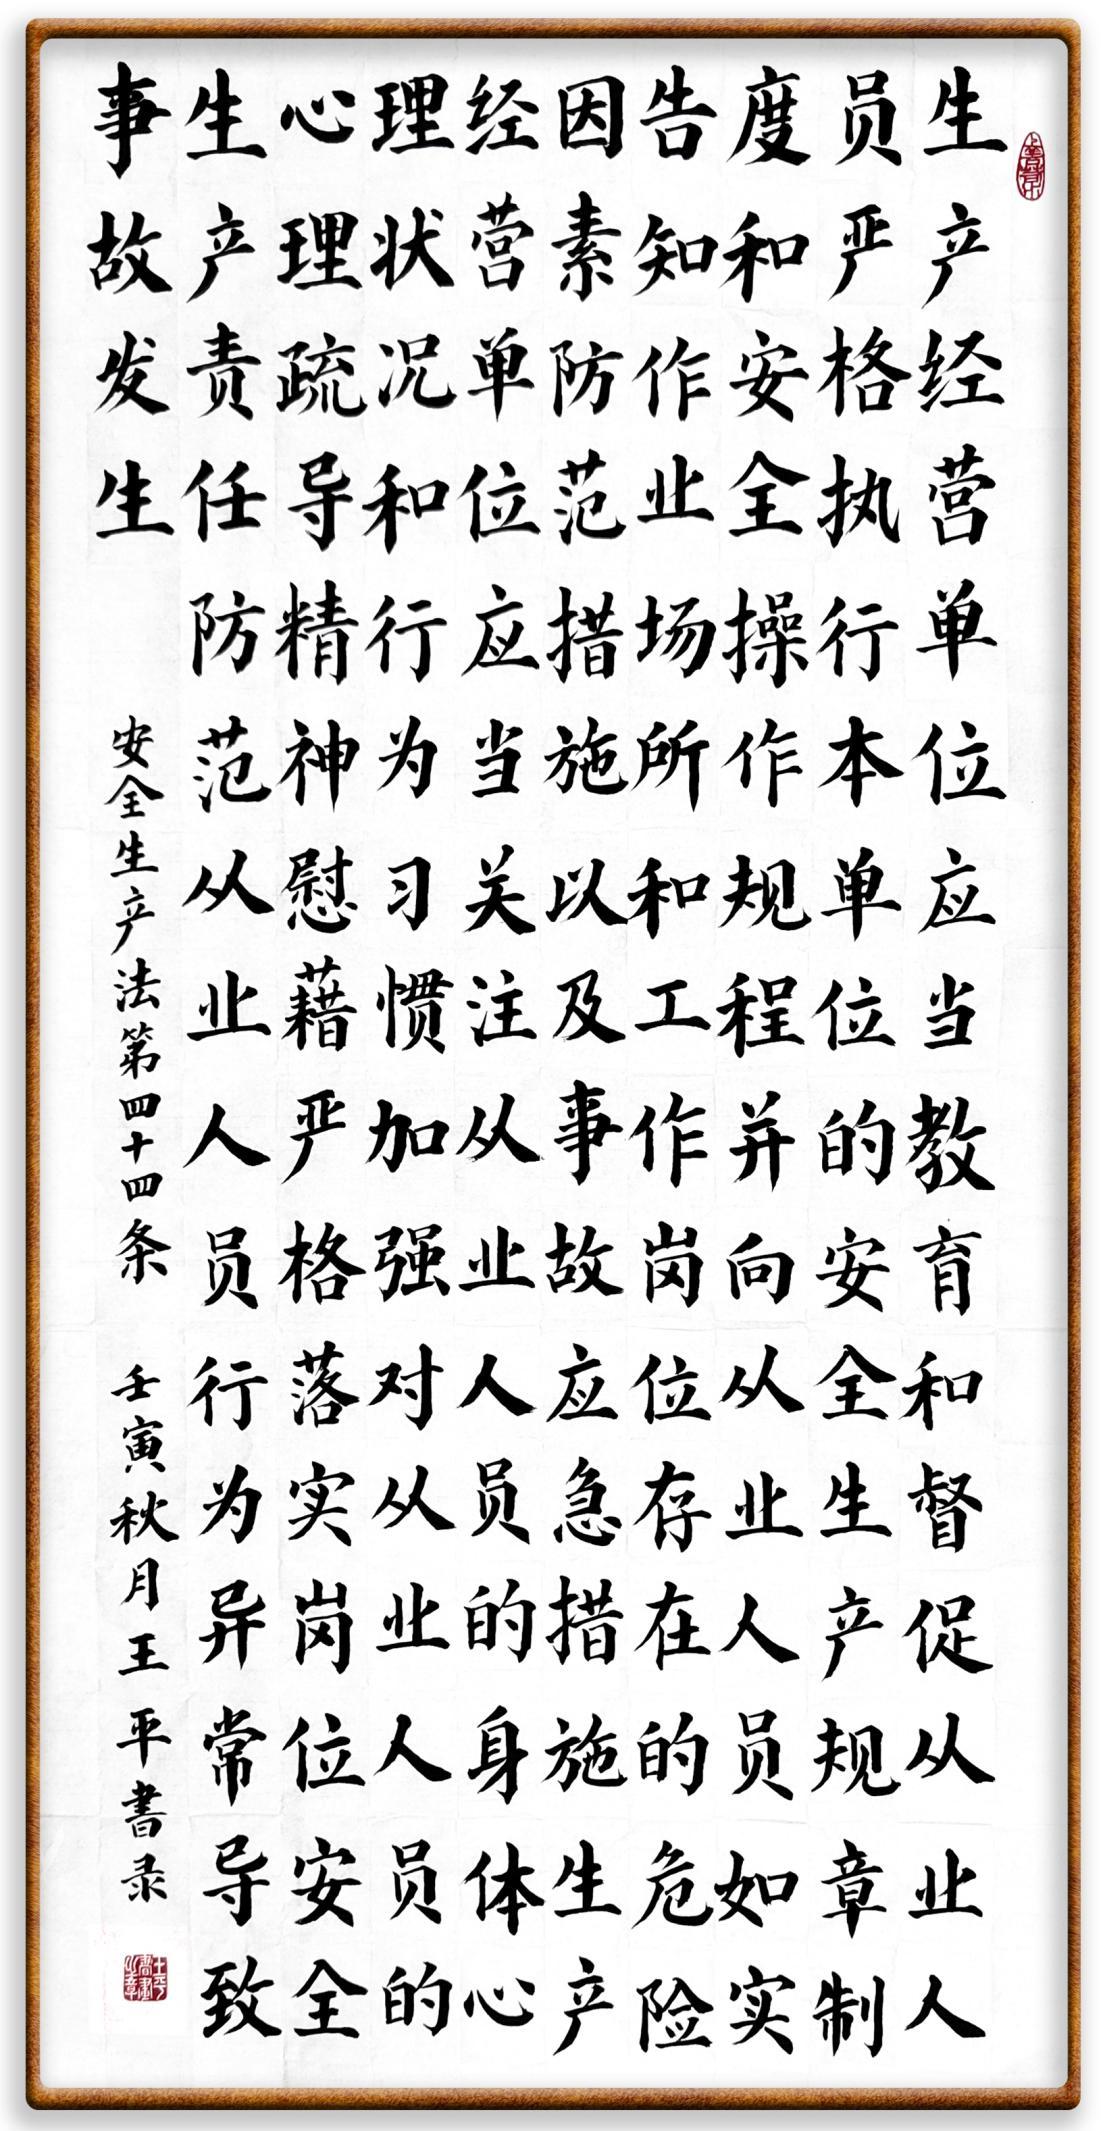 生产经营单位应当教育和督促从业人
员严格执行本单位的安全生产规章制
度和安全操作规程并向从业人员如实
告知作业场所和工作岗位存在的危险
因素防范措施以及事故应急措施生产
经营单位应当关注从业人员的身体心
理状况和行为习惯加强对从业人员的
心理疏导精神慰藉严格落实岗位安全
生产责任防范从业人员行为异常导致
事故发生
安全生产法第四十四条 壬寅秋月王平書录